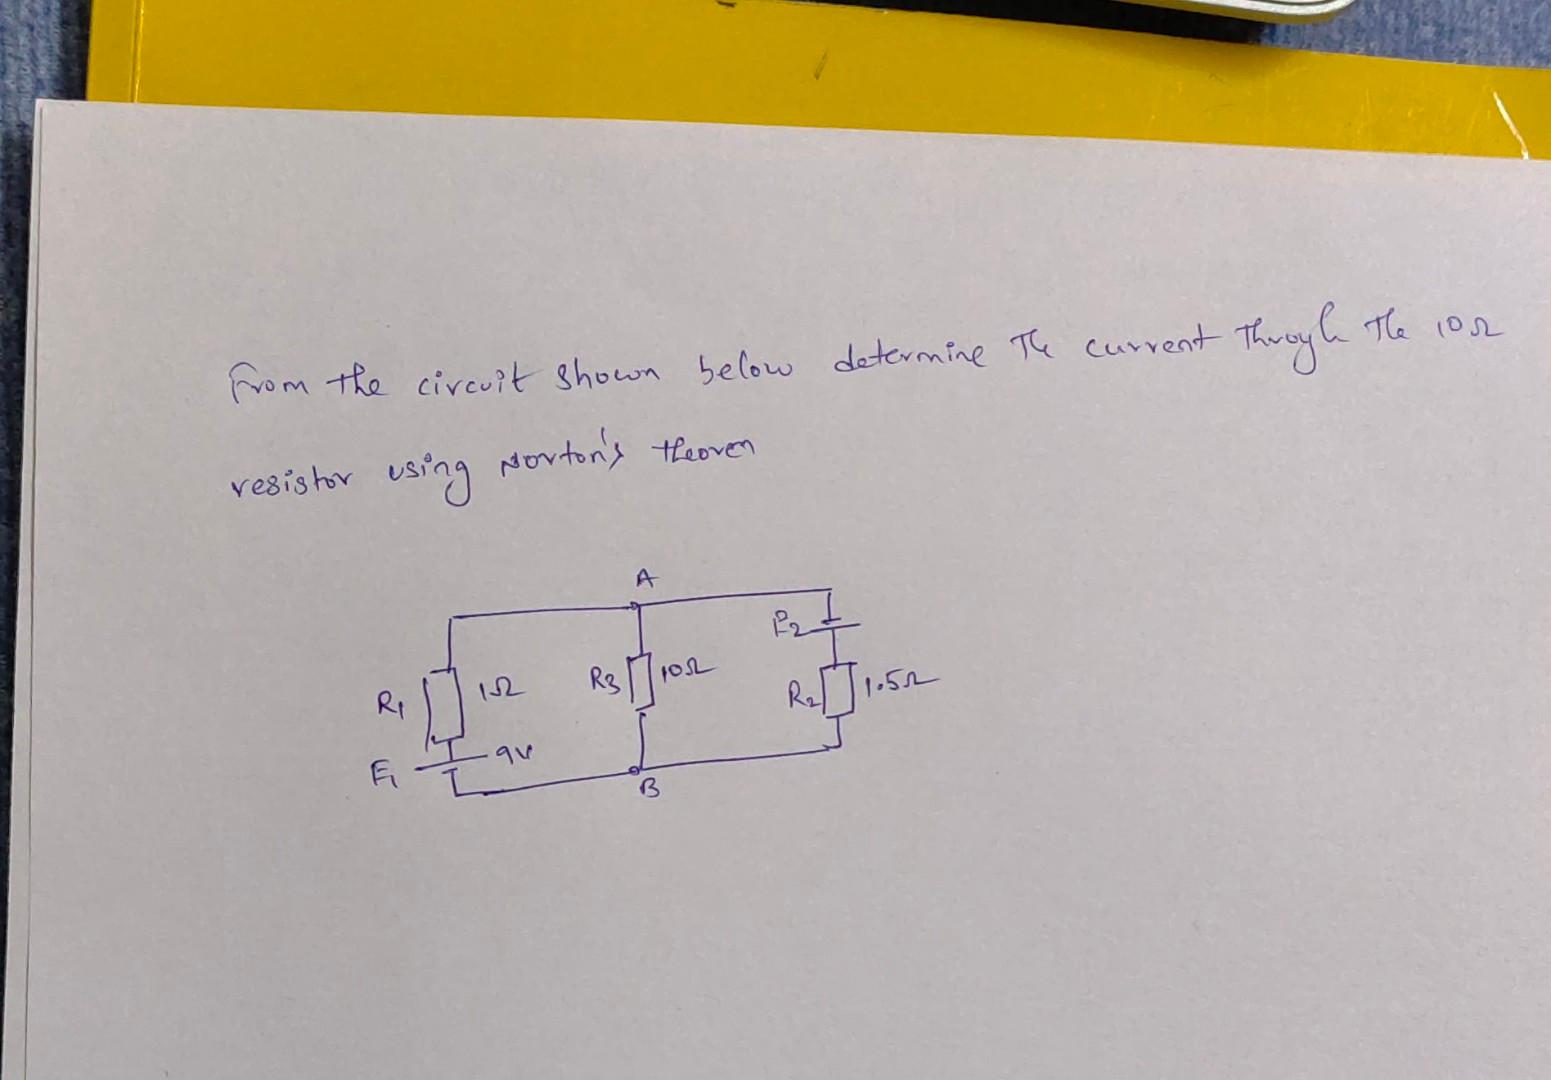 From the circuit shown below determine The current Through The 10Ω
resistor using Norton's theorem
A
E2
R1
1Ω
R3
10Ω
R2
1.5Ω
E1
9V
B